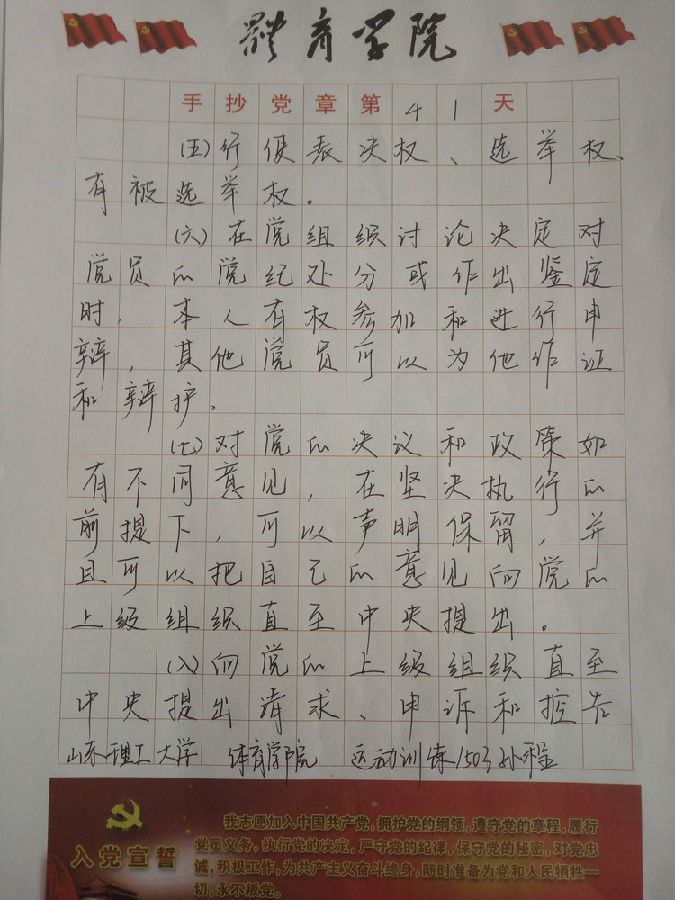 體育学院
手抄党章第41天
(五)行使表决权、选举权、
有被选举权。
(六)在党组织讨论决定对
党员的党纪处分或作出鉴定
时,本人有权参加和进行申
辩,其他党员可以为他作证
和辩护。
(七)对党的决议和政策如
有不同意见,在坚决执行的
前提下,可以声明保留,并
且可以把自己的意见向党的
上级组织直至中央提出。
(八)向党的上级组织直至
中央提出请求、申诉和控告
山东理工大学 体育学院 运动训练1503孙
入党宣誓
我志愿加入中国共产党,拥护党的纲领,遵守党的章程,履行
党员义务,执行党的决定,严守党的纪律,保守党的秘密,对党忠
诚,积极工作,为共产主义奋斗终身,随时准备为党和人民牺牲一
切,永不叛党。